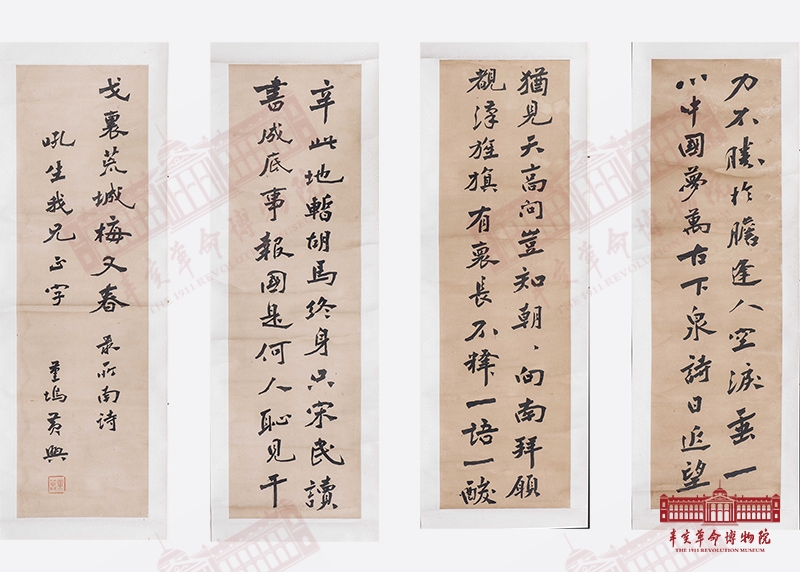 力不勝於膽逢人空淚垂一
心中國夢萬古下泉詩日近望
猶見天高問豈知朝〻向南拜願
覩漢旌旗有褱長不釋一語一酸
辛此地暫胡馬終身只宋民讀
書成底事報國是何人恥見干
戈裏荒城梅又春 录所南詩
吼生我兄正字
堇塢黃興
辛亥革命博物院
THE 1911 REVOLUTION MUSEUM